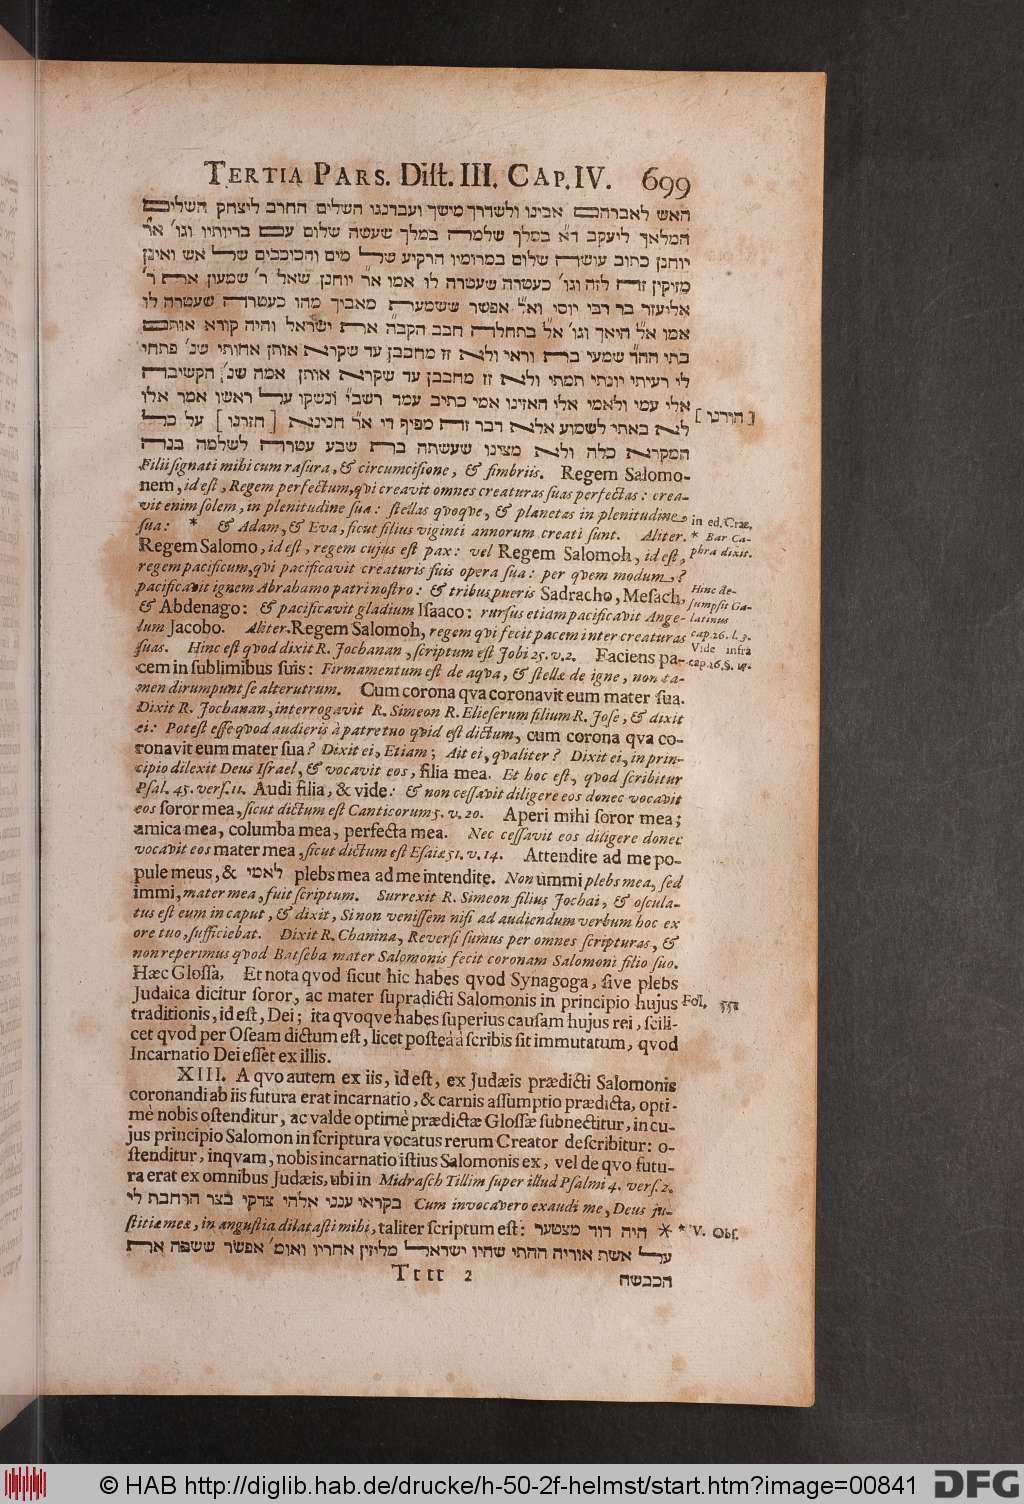 TERTIA PARS. Dist. III. CAP. IV. 699
האש לאברהם אבינו ולשדרך מישך ועבדנגו השלים החרב ליצחק השלים
המלאך ליעקב ד״א במלך שלמה במלך שעשה שלום עם בריותיו וגו׳ א״ר
יוחנן כתוב עושה שלום במרומיו הרקיע של מים והכוכבים של אש ואינן
מזיקין זה לזה וגו׳ כעטרה שעטרה לו אמו א״ר יוחנן שאל ר׳ שמעון את ר׳
אליעזר בר רבי יוסי וא״ל אפשר ששמעת מאביך מהו כעטרה שעטרה לו
אמו א״ל היאך וגו׳ א״ל בתחלה חבב הקב״ה את ישראל והיה קורא אותם
בתי הה״ד שמעי בת וראי ולא זז מחבבן עד שקרא אותן אחותי שנ׳ פתחי
לי רעיתי יונתי תמתי ולא זז מחבבן עד שקרא אותן אמה שנ׳ הקשיבה
אלי עמי ולאמי אלי האזינו אמי כתיב עמד רשב״י ונשקו על ראשו אמר אלו
לא באתי לשמוע אלא דבר זה מפיך דיי א״ר חנינא [ חזרנו ] על כל [ הורנו ]
המקרא כלה ולא מצינו שעשתה בת שבע עטרה לשלמה בנה
Filii signati mihi cum rasura, & circumcisione, & fimbriis. Regem Salomo-
nem, id est, Regem perfectum, qvi creavit omnes creaturas suas perfectas: crea-
vit enim solem, in plenitudine sua: stellas qvoqve, & planetas in plenitudine in ed. Crac.
sua: * & Adam, & Eva, sicut filius viginti annorum creati sunt. Aliter. * Bar Ca-
Regem Salomo, id est, regem cujus est pax: vel Regem Salomoh, id est, phra dixit.
regem pacificum, qvi pacificavit creaturis suis opera sua: per qvem modum,?
pacificavit ignem Abrahamo patri nostro: & tribus pueris Sadracho, Mesach, Hinc de-
& Abdenago: & pacificavit gladium Isaaco: rursus etiam pacificavit Ange- sumpsit Ga-
lum Jacobo. Aliter. Regem Salomoh, regem qvi fecit pacem inter creaturas latinus cap. 26. l. 3.
suas. Hinc est qvod dixit R. Jochanan, scriptum est Jobi 25. v. 2. Faciens pa- Vide infra
cem in sublimibus suis: Firmamentum est de aqva, & stellæ de igne, non ta- cap. 26. §. 17.
men dirumpunt se alterutrum. Cum corona qva coronavit eum mater sua.
Dixit R. Jochanan, interrogavit R. Simeon R. Elieserum filium R. Jose, & dixit
ei: Potest esse qvod audieris à patre tuo qvid est dictum, cum corona qva co-
ronavit eum mater sua? Dixit ei, Etiam; Ait ei, qvaliter? Dixit ei, in prin-
cipio dilexit Deus Israel, & vocavit eos, filia mea. Et hoc est, qvod scribitur
Psal. 45. vers. 11. Audi filia, & vide: & non cessavit diligere eos donec vocavit
eos soror mea, sicut dictum est Canticorum 5. v. 20. Aperi mihi soror mea;
amica mea, columba mea, perfecta mea. Nec cessavit eos diligere donec
vocavit eos mater mea, sicut dictum est Esaiæ 51. v. 14. Attendite ad me po-
pule meus, & לאמי plebs mea ad me intendite. Non ummi plebs mea, sed
immi, mater mea, fuit scriptum. Surrexit R. Simeon filius Jochai, & oscula-
tus est eum in caput, & dixit, Si non venissem nisi ad audiendum verbum hoc ex
ore tuo, sufficiebat. Dixit R. Chanina, Reversi sumus per omnes scripturas, &
non reperimus qvod Batseba mater Salomonis fecit coronam Salomoni filio suo.
Hæc Glossa. Et nota qvod sicut hic habes qvod Synagoga, sive plebs
Judaica dicitur soror, ac mater supradicti Salomonis in principio hujus Fol. 552
traditionis, id est, Dei; ita qvoqve habes superius causam hujus rei, scili-
cet qvod per Oseam dictum est, licet posteà à scribis sit immutatum, qvod
Incarnatio Dei esset ex illis.
XIII. A qvo autem ex iis, id est, ex Judæis prædicti Salomonis
coronandi ab iis futura erat incarnatio, & carnis assumptio prædicta, opti-
mè nobis ostenditur, ac valde optimè prædictæ Glossæ subnectitur, in cu-
jus principio Salomon in scriptura vocatus rerum Creator describitur: o-
stenditur, inqvam, nobis incarnatio istius Salomonis ex, vel de qvo futu-
ra erat ex omnibus Judæis, ubi in Midrasch Tillim super illud Psalmi 4. vers. 2.
בקראי ענני אלהי צדקי בצר הרחבת לי Cum invocavero exaudi me, Deus ju-
stitiæ meæ, in angustia dilatasti mihi, taliter scriptum est: היה דוד מצטער * * V. Obs.
על אשת אוריה החתי שהיו ישראל מליזין אחריו ואומ׳ אפשר ששפה את
Tttt 2 הכבשה
© HAB http://diglib.hab.de/drucke/h-50-2f-helmst/start.htm?image=00841 DFG